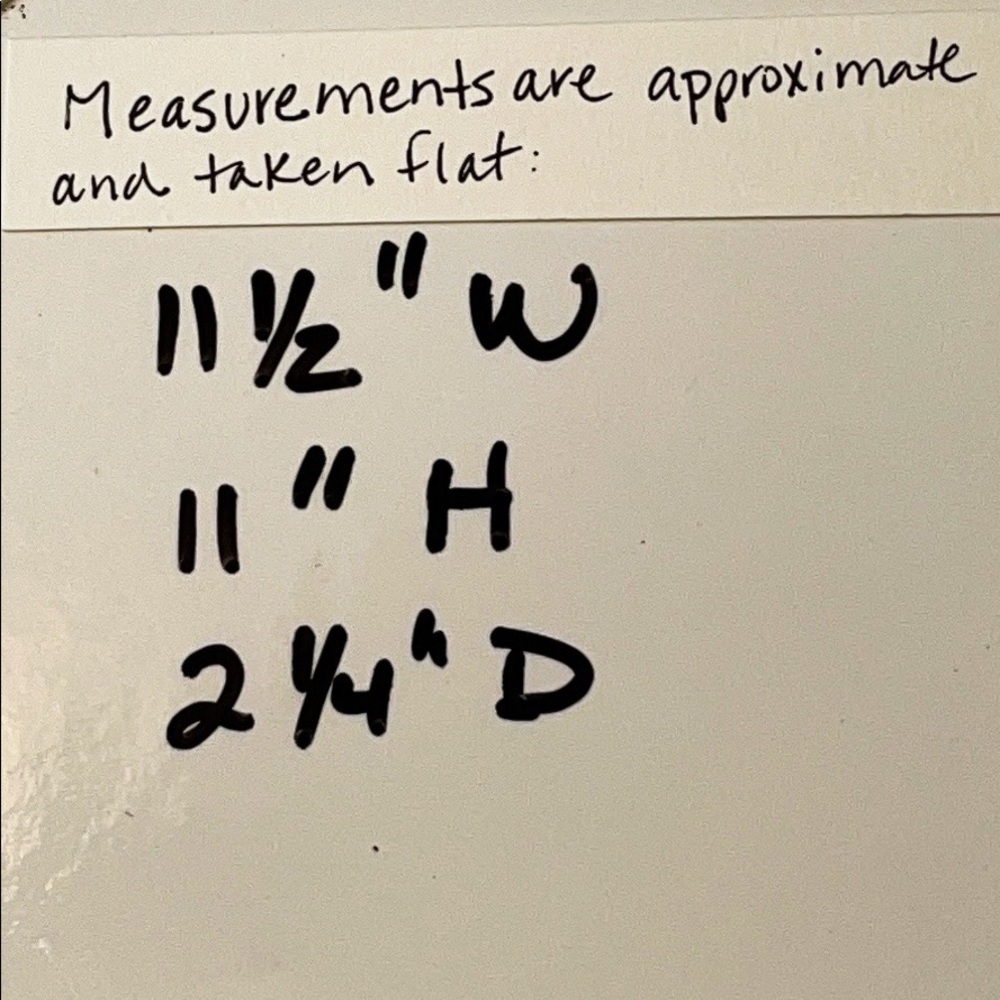 Measurements are approximate
and taken flat:
11 1/2" W
11" H
2 1/4" D